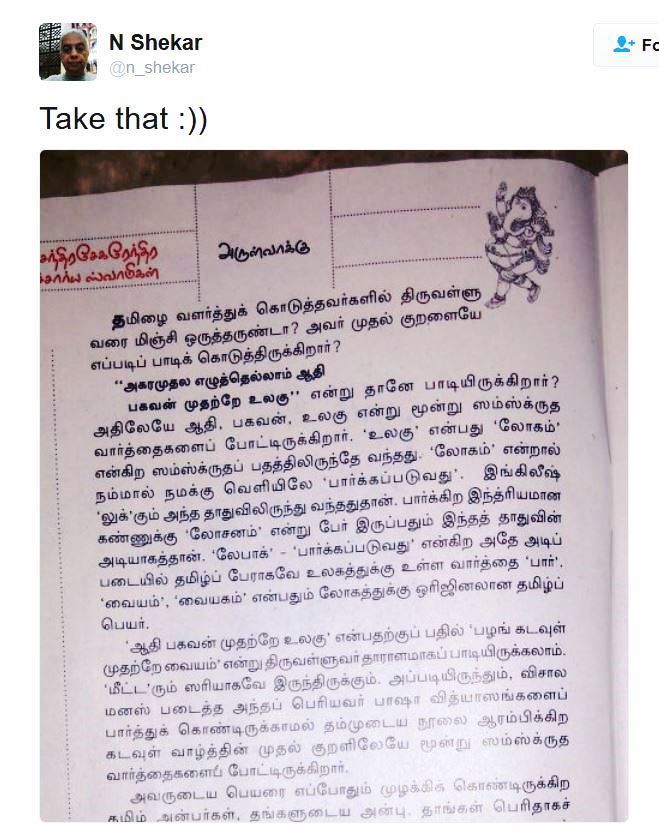 N Shekar
@n_shekar
Fo
Take that :))
சந்திரசேகரேந்திர
அருள்வாக்கு
ஸ்வாமிகள்
தமிழை வளர்த்துக் கொடுத்தவர்களில் திருவள்ளு
வரை மிஞ்சி ஒருத்தருண்டா? அவர் முதல் குறளையே
எப்படிப் பாடிக் கொடுத்திருக்கிறார்?
“அகரமுதல எழுத்தெல்லாம் ஆதி
பகவன் முதற்றே உலகு” என்று தானே பாடியிருக்கிறார்?
அதிலேயே ஆதி, பகவன், உலகு என்று மூன்று ஸம்ஸ்க்ருத
வார்த்தைகளைப் போட்டிருக்கிறார். ‘உலகு’ என்பது ‘லோகம்’
என்கிற ஸம்ஸ்க்ருதப் பதத்திலிருந்தே வந்தது. ‘லோகம்’ என்றால்
நம்மால் நமக்கு வெளியிலே ‘பார்க்கப்படுவது’. இங்கிலீஷ்
‘லுக்’கும் அந்த தாதுவிலிருந்து வந்ததுதான். பார்க்கிற இந்த்ரியமான
கண்ணுக்கு ‘லோசனம்’ என்று பேர் இருப்பதும் இந்தத் தாதுவின்
அடியாகத்தான். ‘லேபாக்’ - ‘பார்க்கப்படுவது’ என்கிற அதே அடிப்
படையில் தமிழ்ப் பேராகவே உலகத்துக்கு உள்ள வார்த்தை ‘பார்’.
‘வையம்’, ‘வையகம்’ என்பதும் லோகத்துக்கு ஒரிஜினலான தமிழ்ப்
பெயர்.
‘ஆதி பகவன் முதற்றே உலகு’ என்பதற்குப் பதில் ‘பழங் கடவுள்
முதற்றே வையம்’ என்று திருவள்ளுவர் தாராளமாகப் பாடியிருக்கலாம்.
‘மீட்ட’ரும் ஸரியாகவே இருந்திருக்கும். அப்படியிருந்தும், விசால
மனஸ் படைத்த அந்தப் பெரியவர் பாஷா வித்யாஸங்களைப்
பார்த்துக் கொண்டிருக்காமல் தம்முடைய நூலை ஆரம்பிக்கிற
கடவுள் வாழ்த்தின் முதல் குறளிலேயே மூன்று ஸம்ஸ்க்ருத
வார்த்தைகளைப் போட்டிருக்கிறார்.
அவருடைய பெயரை எப்போதும் முழக்கிக் கொண்டிருக்கிற
தமிழ் அன்பர்கள், தங்களுடைய அன்பு. தாங்கள் பெரிதாகச்